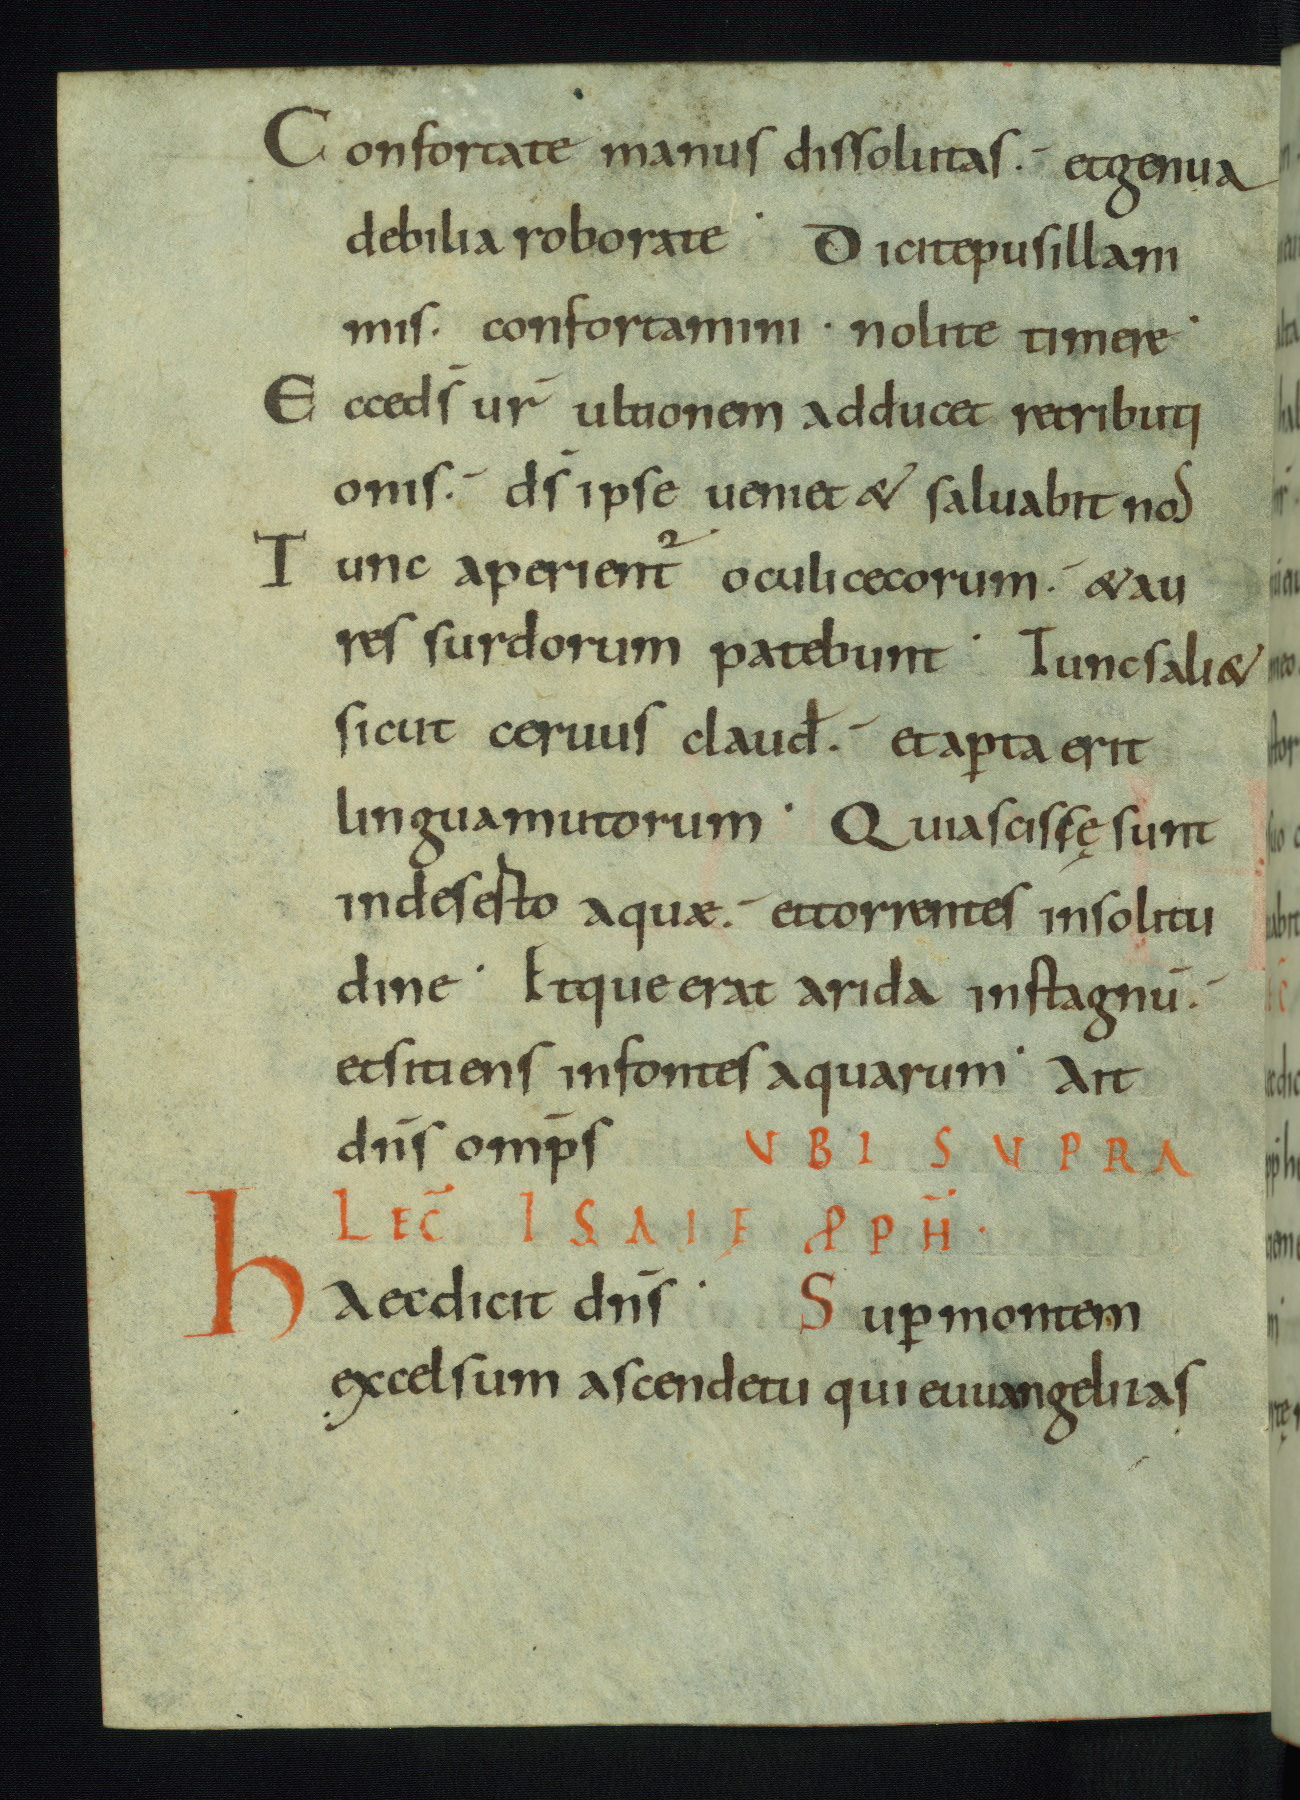 Confortate manus dissolutas. et genua
debilia roborate. Dicite pusillani
mis. confortamini. nolite timere.
Ecce dS̄ ur̄ ultionem adducet retributi
onis. dS̄ ipse ueniet & saluabit nos
Tunc aperient² oculi cecorum. & au
res surdorum patebunt. Tunc sali&
sicut ceruus claud̄. et aꝑta erit
lingua mutorum. Quia scissę sunt
in deserto aquæ. et torrentes in solitu
dine. Et que erat arida in stagnū.
et sitiens in fontes aquarum. Ait
dn̄s omp̄s UBI SUPRA
LEC̄ ISAIE PPH̄.
hAec dicit dn̄s. Suꝑ montem
excelsum ascende tu qui euuangelizas